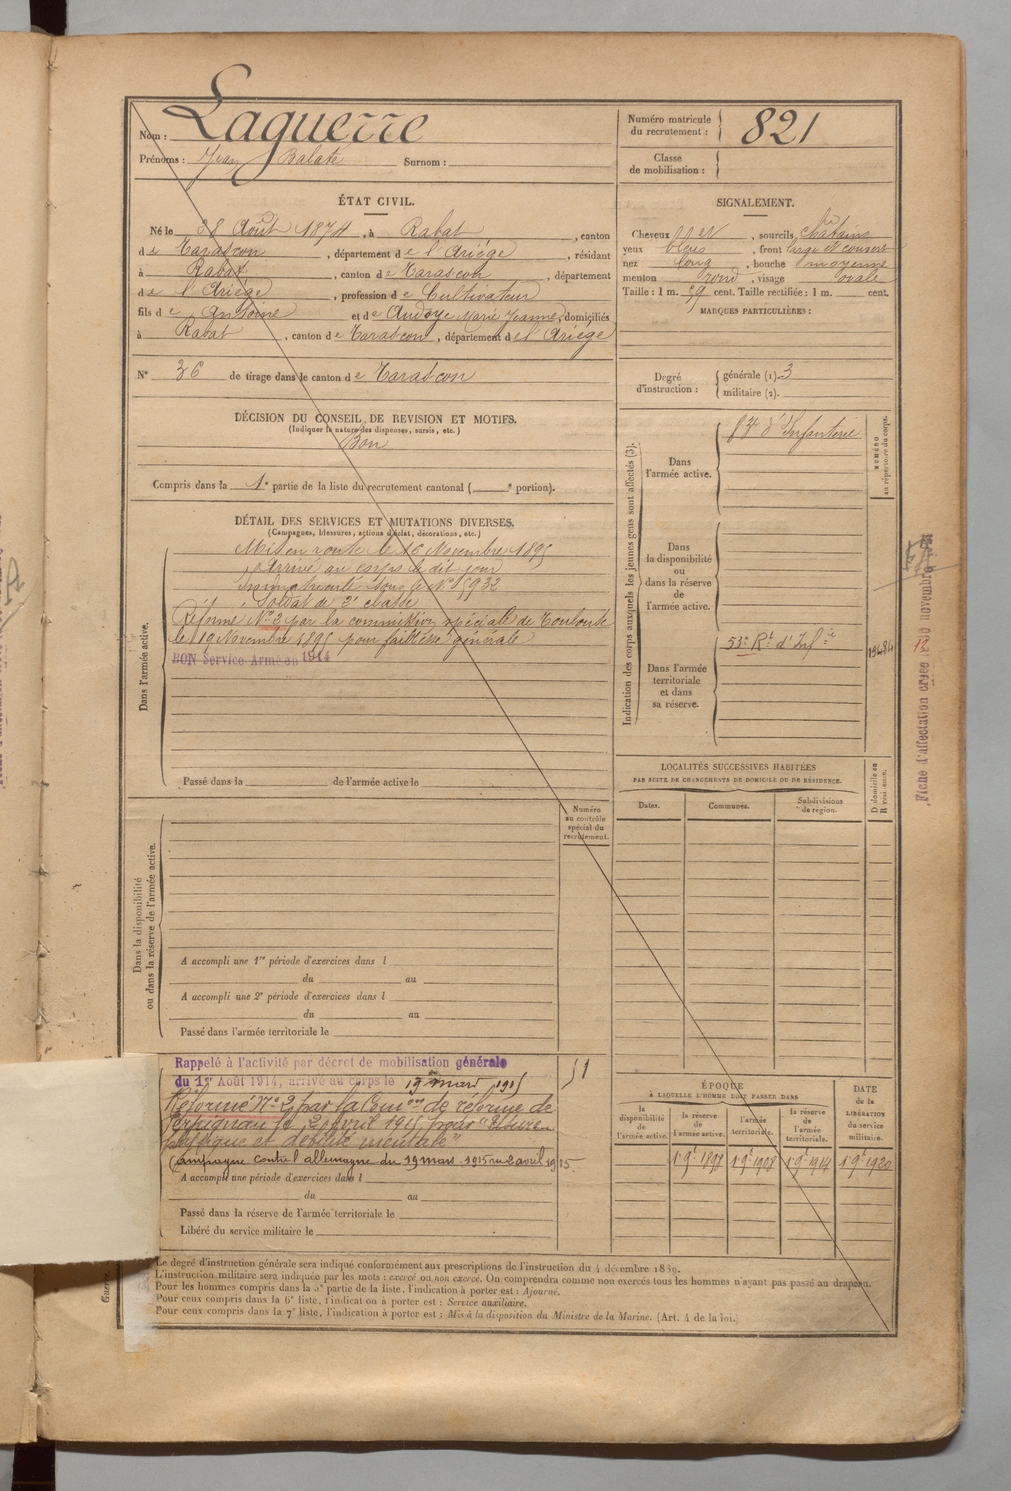 Nom : Laguerre
Prénoms : Jean Surnom :
Numéro matricule du recrutement : 821
Classe de mobilisation :
ÉTAT CIVIL.
Né le 28 Août 1874, à Rabat, canton
de Tarascon, département de l'Ariége, résidant
à Rabat, canton de Tarascon, département
de l'Ariége, profession de Cultivateur
fils de Antoine et de Audoye Marie Jeanne, domiciliés
à Rabat, canton de Tarascon, département de l'Ariége
N° 36 de tirage dans le canton de Tarascon
SIGNALEMENT.
Cheveux et, sourcils châtains
yeux bleus, front large et couvert
nez long, bouche moyenne
menton rond, visage ovale
Taille : 1 m. 59 cent. Taille rectifiée : 1 m. cent.
MARQUES PARTICULIÈRES :
Degré d'instruction : générale (1). 3
militaire (2).
DÉCISION DU CONSEIL DE REVISION ET MOTIFS.
(Indiquer la nature des dispenses, sursis, etc.)
Bon
Compris dans la 1e partie de la liste du recrutement cantonal ( e portion).
DÉTAIL DES SERVICES ET MUTATIONS DIVERSES.
(Campagnes, blessures, actions d'éclat, décorations, etc.)
Dans l'armée active.
Mis en route le 16 Novembre 1895
Arrivé au corps le dit jour
Immatriculé sous le N° 15932
Soldat de 2e classe
Réformé N° 2 par la commission spéciale de Toulouse
le 19 Novembre 1895 pour faiblesse générale
BON Service Armé en 1914
Passé dans la de l'armée active le
Indication des corps auxquels les jeunes gens sont affectés (3).
Dans l'armée active.
83e d'Infanterie
NUMÉRO au répertoire du corps.
Dans la disponibilité ou dans la réserve de l'armée active.
Dans l'armée territoriale et dans sa réserve.
53e Rt d'Infie
Fiche d'affectation créée le 30 novembre
LOCALITÉS SUCCESSIVES HABITÉES
PAR SUITE DE CHANGEMENTS DE DOMICILE OU DE RÉSIDENCE.
Dates. Communes. Subdivisions de région. D domicile ou R résidence.
Numéro au contrôle spécial du recrutement.
Dans la disponibilité ou dans la réserve de l'armée active.
A accompli une 1re période d'exercices dans l
du au
A accompli une 2e période d'exercices dans l
du au
Passé dans l'armée territoriale le
Rappelé à l'activité par décret de mobilisation générale
du 1er Août 1914, arrivé au corps le 19 mars 1915
Réformé N° 2 par la Comon de réforme de
Perpignan le 2 avril 1915 pour "Usure
physique et débilité mentale"
Campagne contre l'allemagne du 19 mars 1915 au 2 avril 1915.
A accompli une période d'exercices dans l
du au
Passé dans la réserve de l'armée territoriale le
Libéré du service militaire le
ÉPOQUE
À LAQUELLE L'HOMME DOIT PASSER DANS
la disponibilité de l'armée active. la réserve de l'armée active. l'armée territoriale. la réserve de l'armée territoriale.
DATE de la LIBÉRATION du service militaire.
1er 9bre 1898 1er 9bre 1908 1er 9bre 1914 1er 9bre 1920
Le degré d'instruction générale sera indiqué conformément aux prescriptions de l'instruction du 4 décembre 1889.
L'instruction militaire sera indiquée par les mots : exercé ou non exercé. On comprendra comme non exercés tous les hommes n'ayant pas passé au drapeau.
Pour les hommes compris dans la 5e partie de la liste, l'indication à porter est : Ajourné.
Pour ceux compris dans la 6e liste, l'indication à porter est : Service auxiliaire.
Pour ceux compris dans la 7e liste, l'indication à porter est : Mis à la disposition du Ministre de la Marine. (Art. 4 de la loi.)